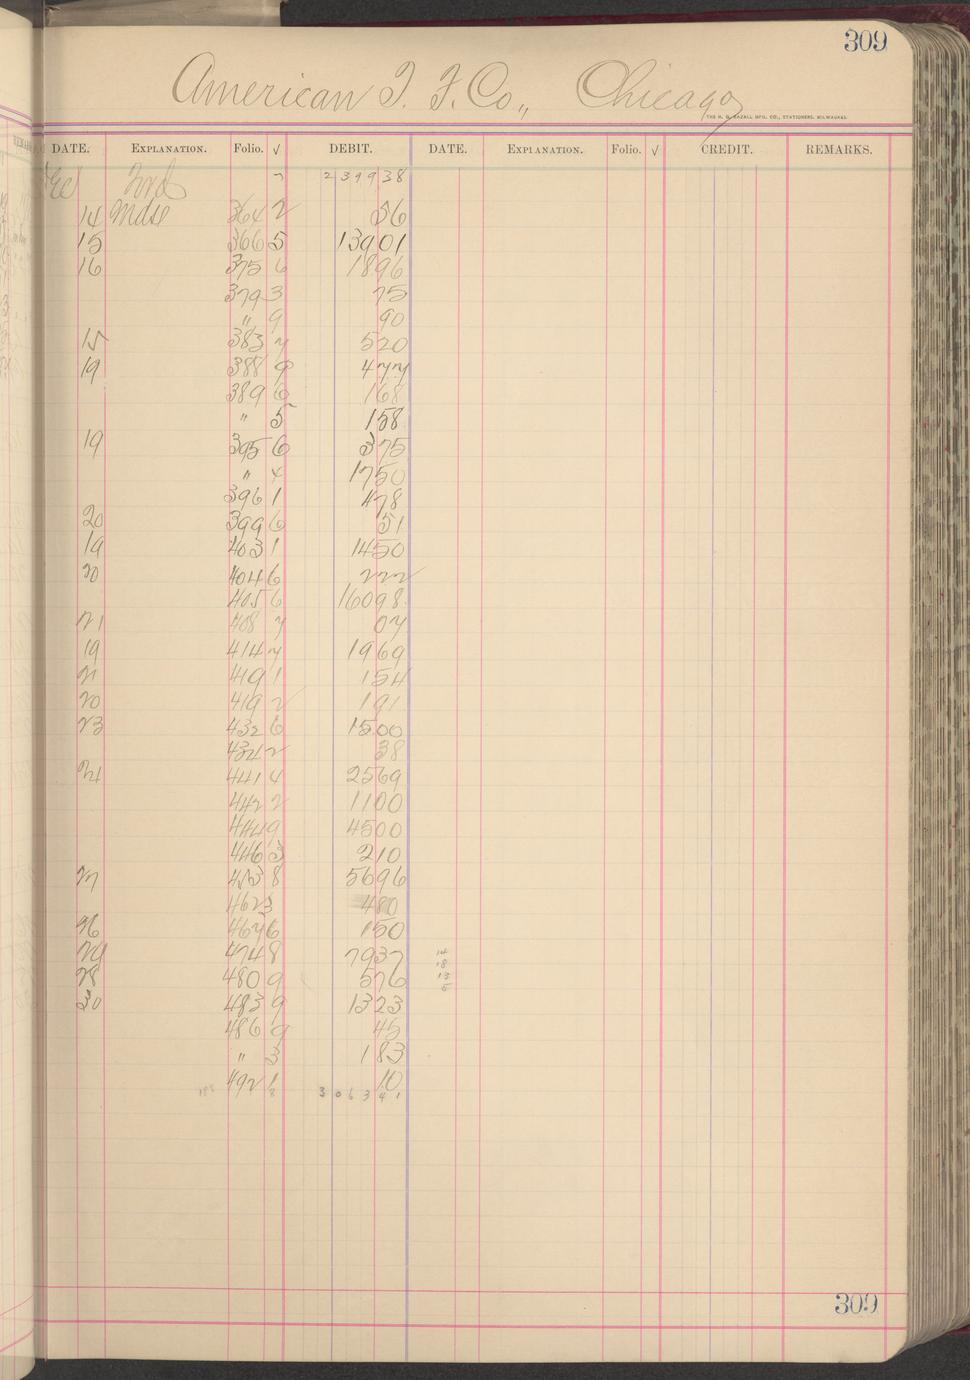 309
American T. F. Co., Chicago
THE H. G. RAZALL MFG. CO., STATIONERS, MILWAUKEE
DATE. EXPLANATION. Folio. √ DEBIT. DATE. EXPLANATION. Folio. √ CREDIT. REMARKS.
Fwd 7 2399 38
14 Mdse 364 2 56
15 366 5 139 01
16 375 6 18 96
379 3 75
" 9 90
15 383 7 5 20
19 388 9 4 77
389 6 1 68
" 5 1 58
19 395 6 3 75
" 4 17 50
396 1 4 78
20 399 6 51
19 403 1 14 50
20 404 6 2 22
405 6 160 98
21 408 7 07
19 414 7 19 69
21 419 1 1 54
20 419 2 1 91
23 432 6 15 00
434 2 38
24 441 4 25 69
442 2 11 00
444 9 45 00
446 3 2 10
27 453 8 56 96
462 3 4 80
26 467 6 1 50
29 474 8 79 37
14
18
28 480 9 5 76
13
5
30 483 9 13 23
486 9 45
" 3 1 83
492 1 10
8 3063 41
309